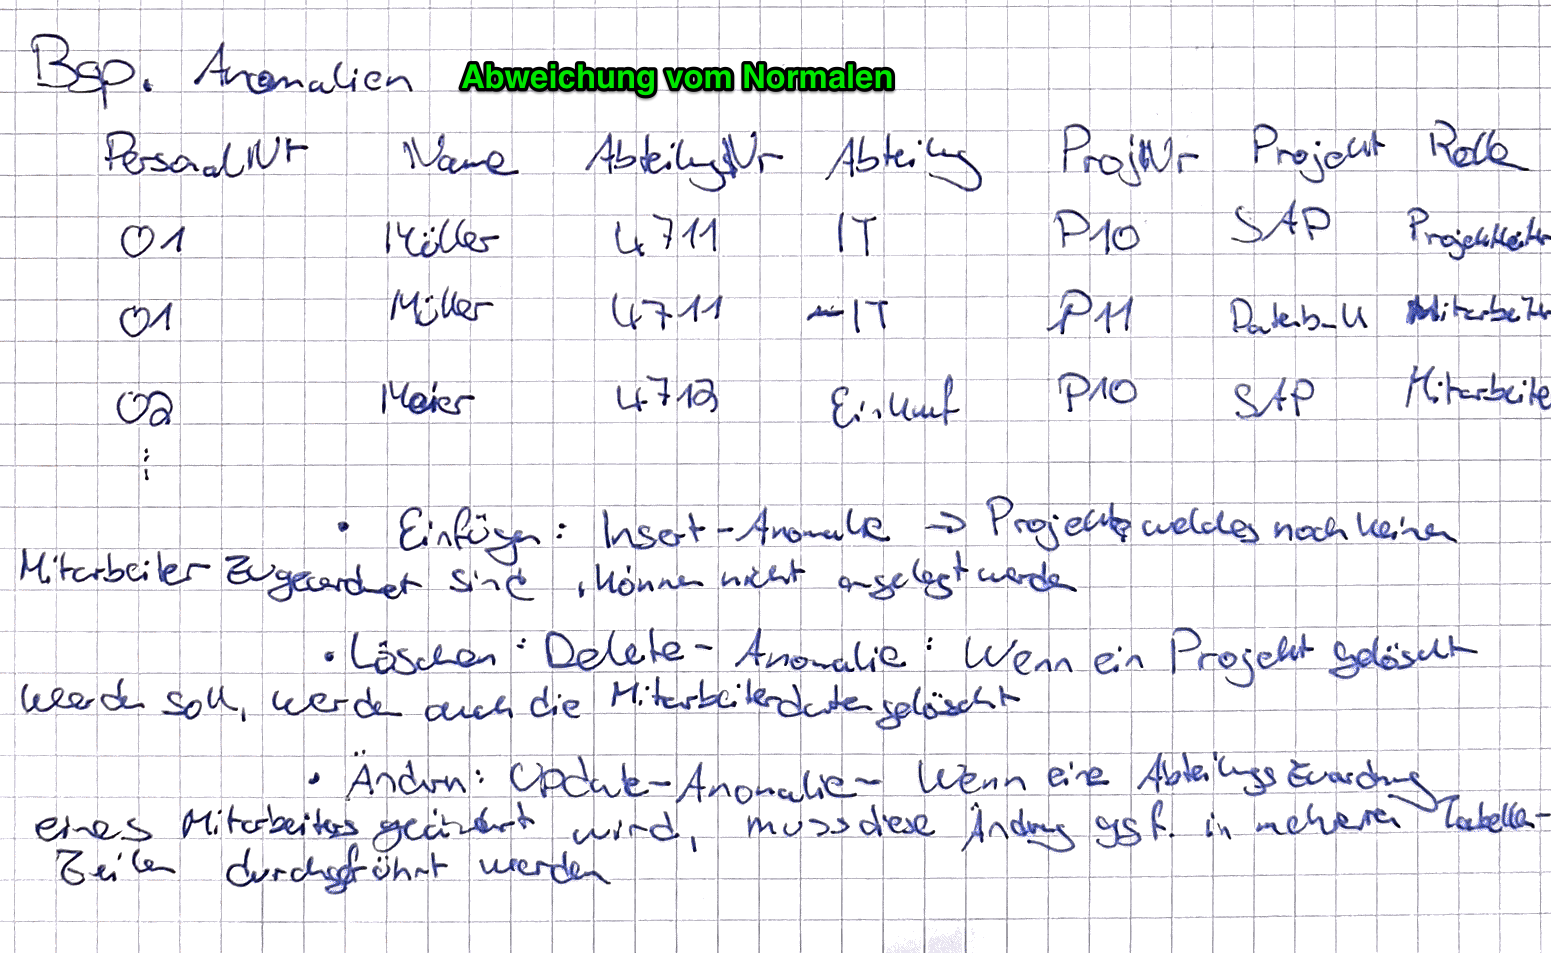 Bsp. Anomalien Abweichung vom Normalen
PersonalNr Name AbteilungNr Abteilung ProjNr Projekt Rolle
01 Müller 4711 IT P10 SAP Projektleiter
01 Müller 4711 IT P11 Datenbank Mitarbeiter
02 Maier 4712 Einkauf P10 SAP Mitarbeite
⋮
• Einfügen: Insert-Anomalie → Projekte welches noch keinen
Mitarbeiter zugeordnet sind, können nicht angelegt werden
• Löschen: Delete-Anomalie: Wenn ein Projekt gelöscht
werden soll, werden auch die Mitarbeiterdaten gelöscht
• Ändern: Update-Anomalie- Wenn eine Abteilungszuordnung
eines Mitarbeiters geändert wird, muss diese Änderung ggf. in mehreren Tabellen-
Zeilen durchgeführt werden